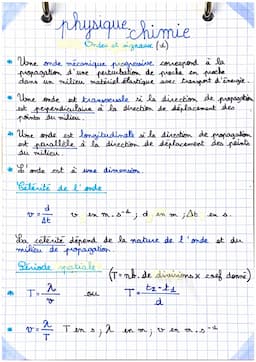 physique chimie
Ondes et signaux (1)
• Une onde mécanique progressive correspond à la
propagation d'une perturbation de proche en proche
dans un milieu matériel élastique avec transport d'énergie.
• Une onde est transversale si la direction de propagation
est perpendiculaire à la direction de déplacement des
points du milieu.
• Une onde est longitudinale si la direction de propagation
est parallèle à la direction de déplacement des points
du milieu.
• L'onde est à une dimension.
Célérité de l'onde
v = d/Δt v en m.s⁻¹ ; d en m ; Δt en s.
La célérité dépend de la nature de l'onde et du
milieu de propagation.
Période spatiale (T = nb. de divisions x coef donné)
• T = λ/v ou T = t2-t1/d
• v = λ/T T en s ; λ en m ; v en m.s⁻¹